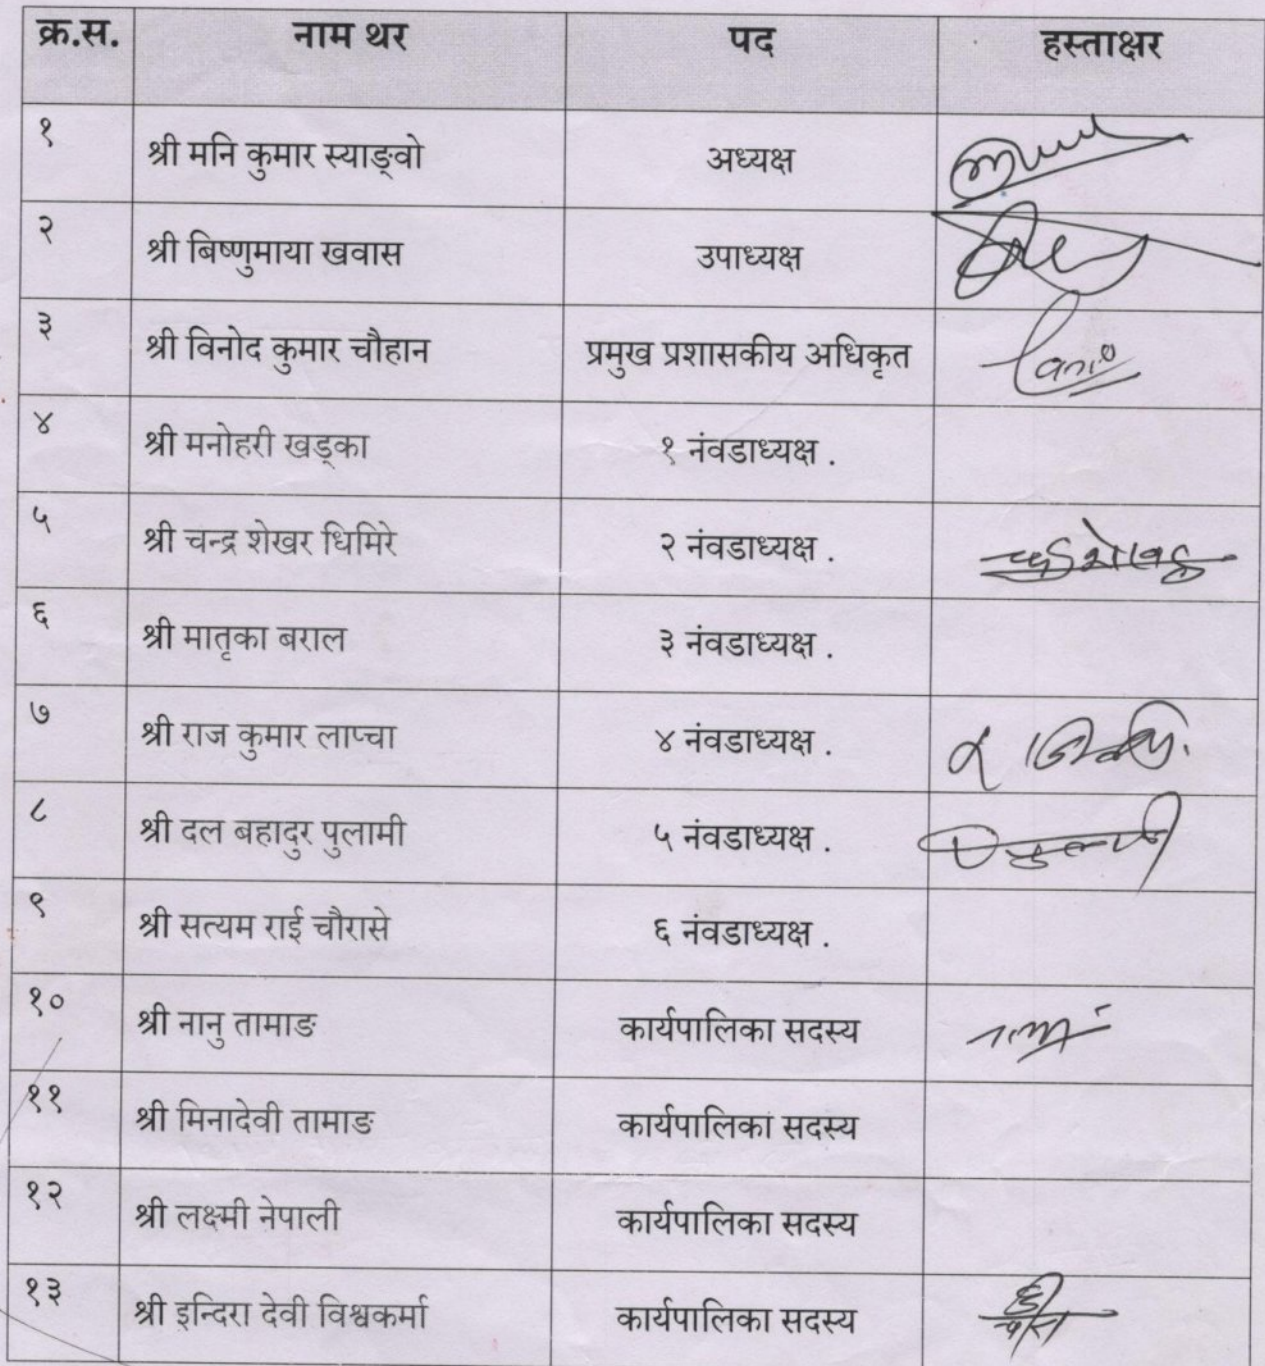 क्र.स. नाम थर पद हस्ताक्षर
१ श्री मनि कुमार स्याङ्वो अध्यक्ष
२ श्री बिष्णुमाया खवास उपाध्यक्ष
३ श्री विनोद कुमार चौहान प्रमुख प्रशासकीय अधिकृत
४ श्री मनोहरी खड्का १ नंवडाध्यक्ष .
५ श्री चन्द्र शेखर घिमिरे २ नंवडाध्यक्ष .
६ श्री मातृका बराल ३ नंवडाध्यक्ष .
७ श्री राज कुमार लाप्चा ४ नंवडाध्यक्ष .
८ श्री दल बहादुर पुलामी ५ नंवडाध्यक्ष .
९ श्री सत्यम राई चौरासे ६ नंवडाध्यक्ष .
१० श्री नानु तामाङ कार्यपालिका सदस्य
११ श्री मिनादेवी तामाङ कार्यपालिका सदस्य
१२ श्री लक्ष्मी नेपाली कार्यपालिका सदस्य
१३ श्री इन्दिरा देवी विश्वकर्मा कार्यपालिका सदस्य